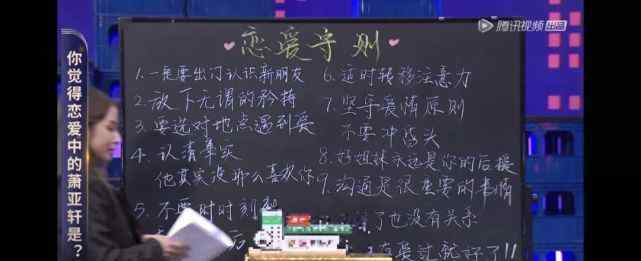 腾讯视频 出品
你觉得恋爱中的萧亚轩是？
恋爱守则
1.一定要出门认识新朋友
2.放下无谓的矜持
3.要选对地点遇到爱
4.认清事实
他其实没那么喜欢你
5.不要时时刻刻
6.适时转移注意力
7.坚守爱情原则
不要冲昏头
8.好姐妹永远是你的后援
9.沟通是很重要的事情
了也没有关系
有爱过就好了!!